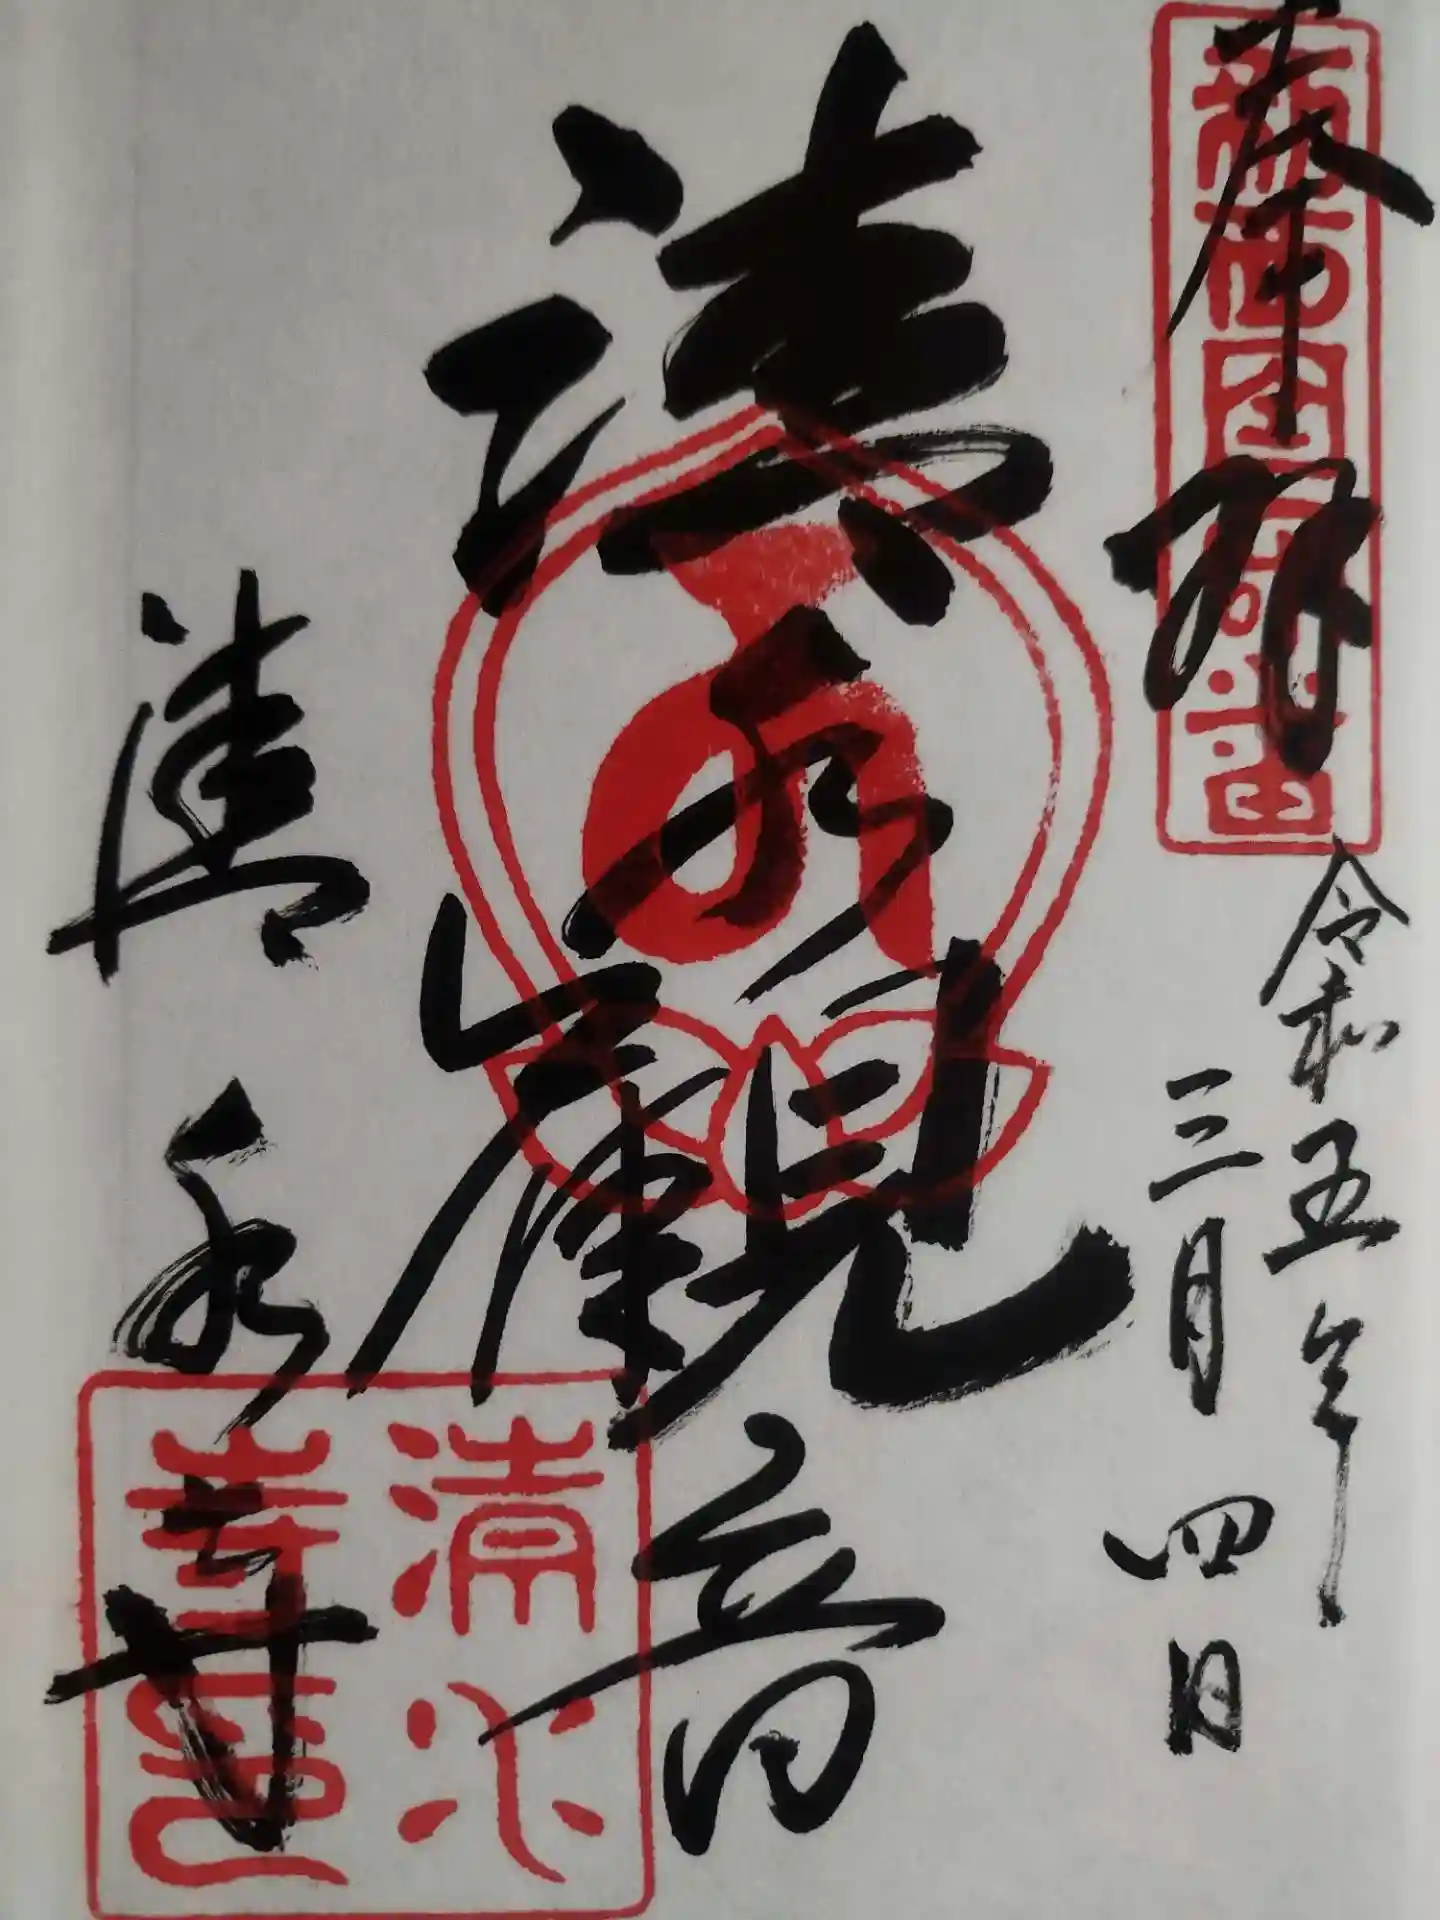 奉拝
新西国 番
令和五年
三月四日
清水観音
清水寺
清水寺印